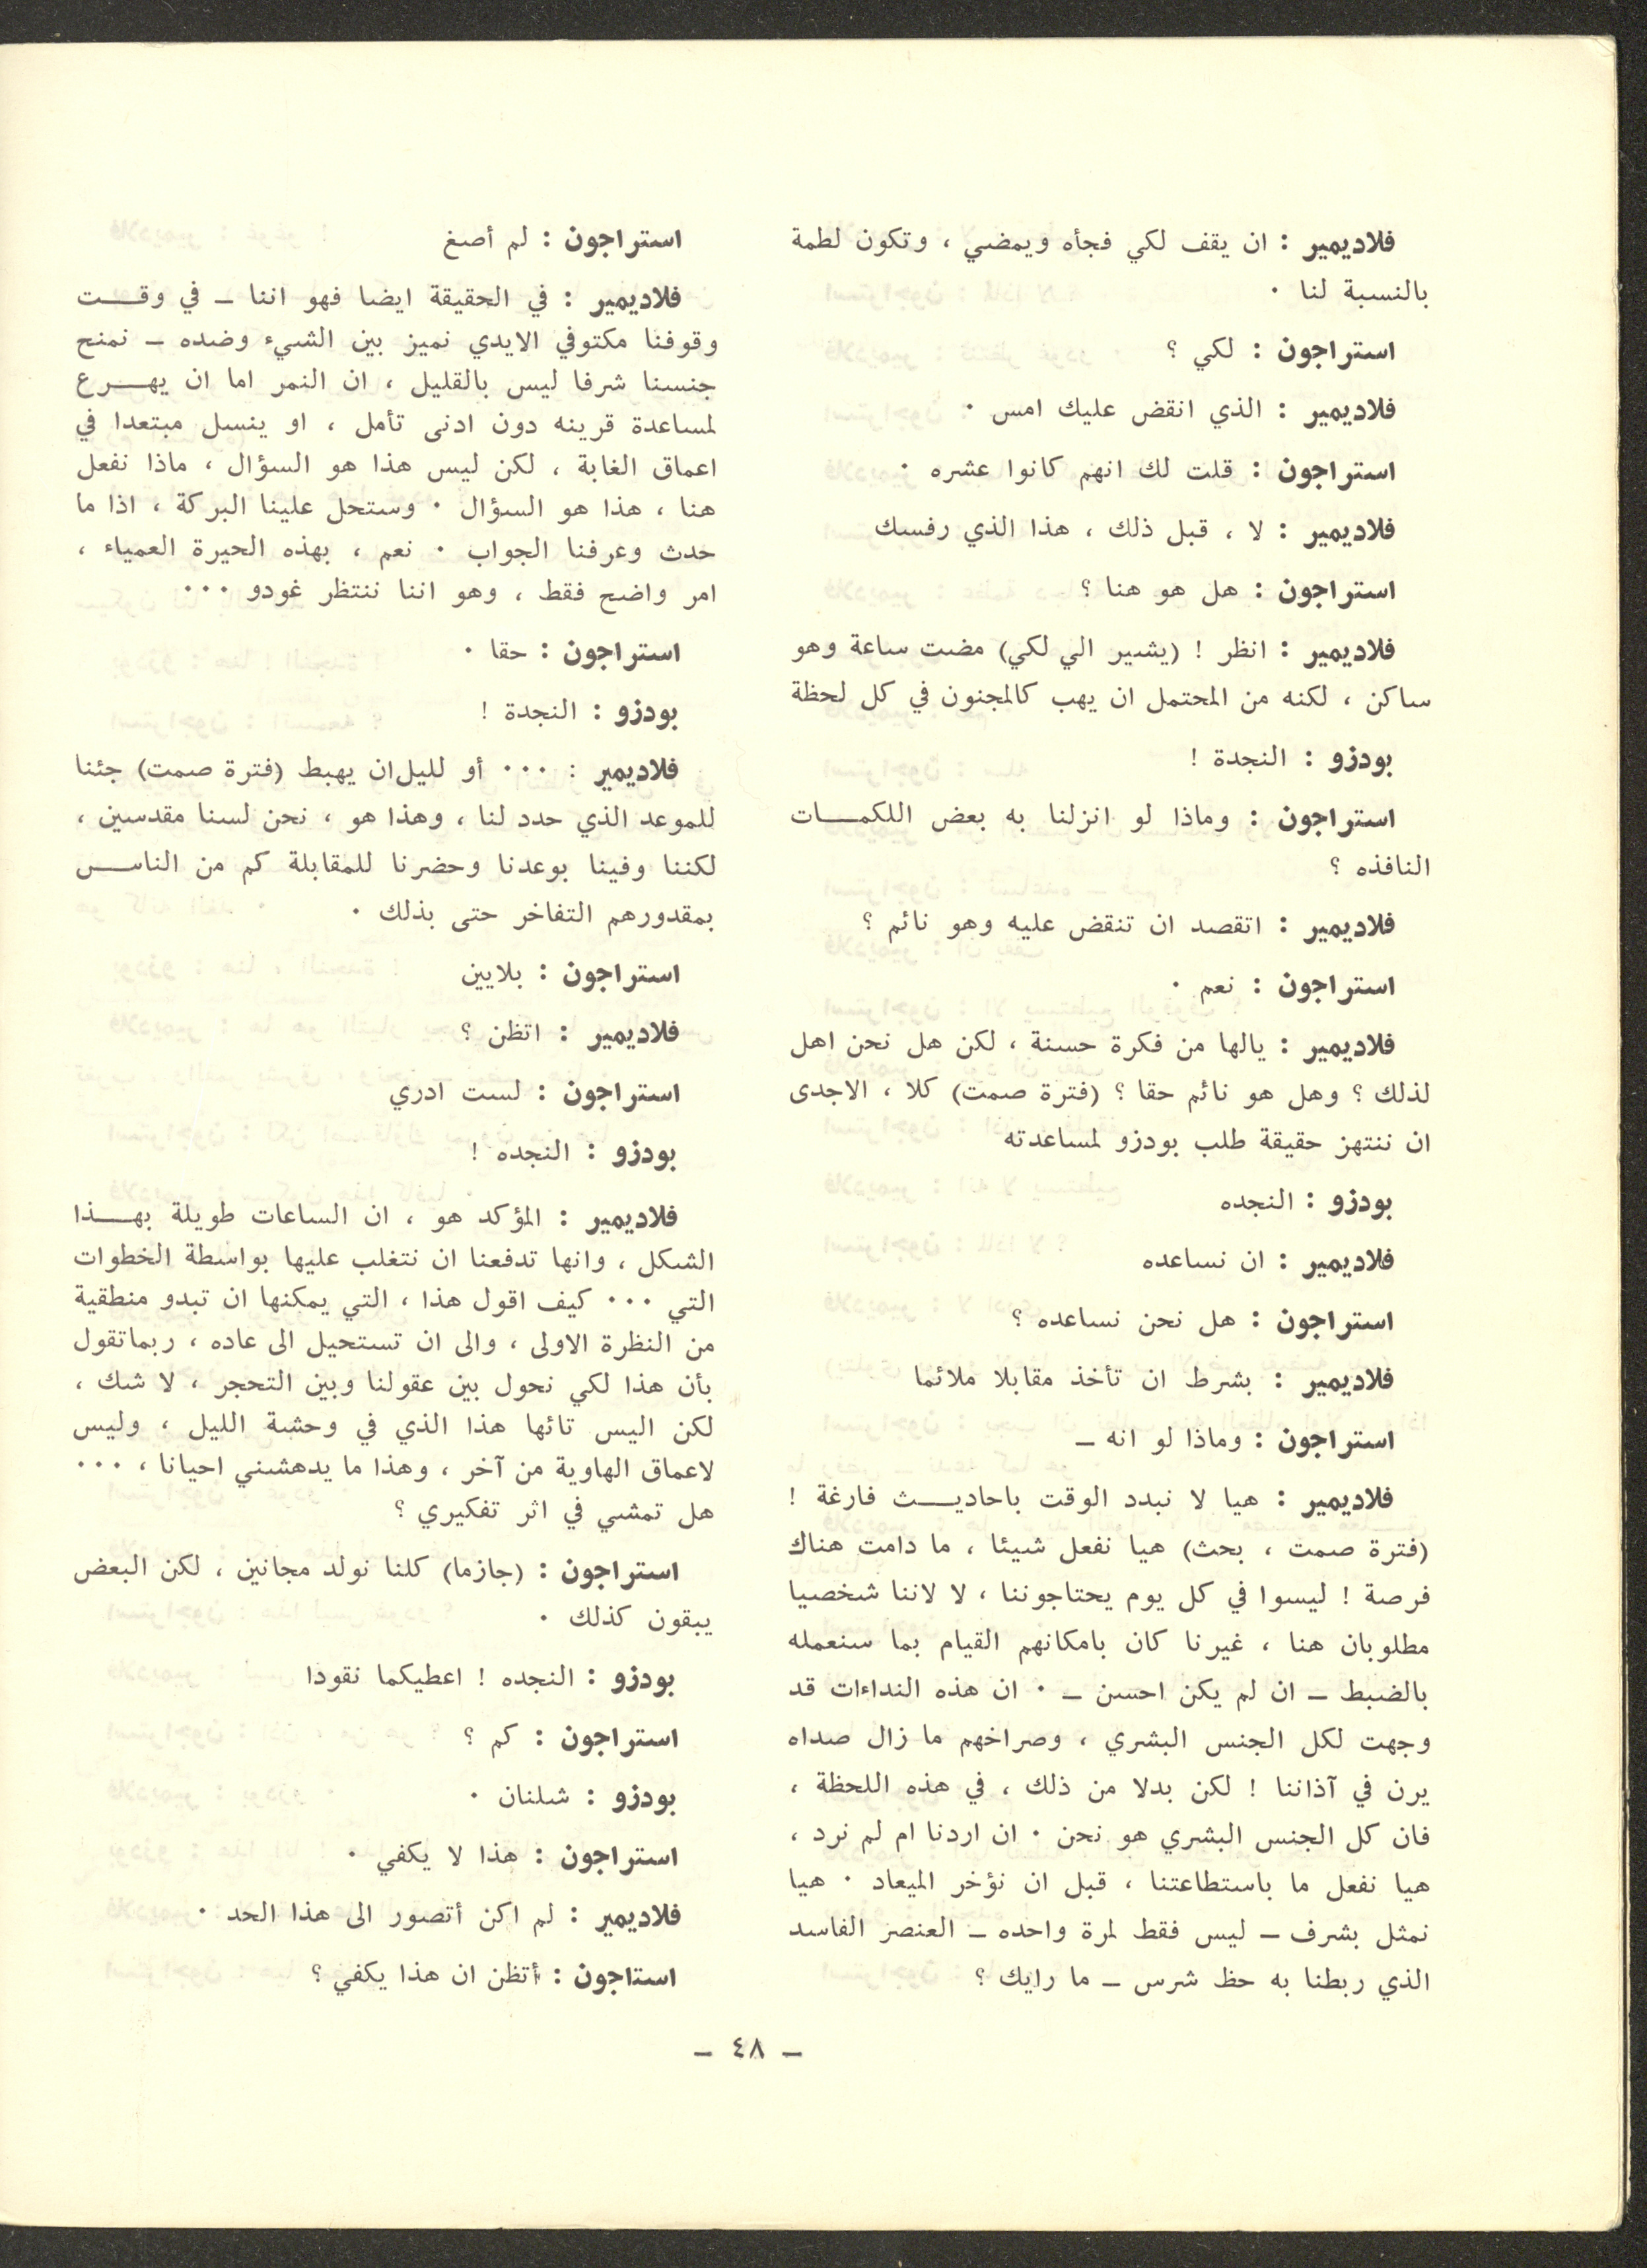 فلاديمير : ان يقف لكي فجأه ويمضي ، وتكون لطمة
بالنسبة لنا ٠
استراجون : لكي ؟
فلاديمير : الذي انقض عليك امس ٠
استراجون : قلت لك انهم كانوا عشره ٠
فلاديمير : لا ، قبل ذلك ، هذا الذي رفسك
استراجون : هل هو هنا ؟
فلاديمير : انظر ! (يشير الي لكي) مضت ساعة وهو
ساكن ، لكنه من المحتمل ان يهب كالمجنون في كل لحظة
بودزو : النجدة !
استراجون : وماذا لو انزلنا به بعض اللكمـــات
النافذه ؟
فلاديمير : اتقصد ان تنقض عليه وهو نائم ؟
استراجون : نعم ٠
فلاديمير : يالها من فكرة حسنة ، لكن هل نحن اهل
لذلك ؟ وهل هو نائم حقا ؟ (فترة صمت) كلا ، الاجدى
ان ننتهز حقيقة طلب بودزو لمساعدته
بودزو : النجده
فلاديمير : ان نساعده
استراجون : هل نحن نساعده ؟
فلاديمير : بشرط ان تأخذ مقابلا ملائما
استراجون : وماذا لو انه ـ
فلاديمير : هيا لا نبدد الوقت باحاديـــث فارغة !
(فترة صمت ، بحث) هيا نفعل شيئا ، ما دامت هناك
فرصة ! ليسوا في كل يوم يحتاجوننا ، لا لاننا شخصيا
مطلوبان هنا ، غيرنا كان بامكانهم القيام بما سنعمله
بالضبط ـ ان لم يكن احسن ـ ٠ ان هذه النداءات قد
وجهت لكل الجنس البشري ، وصراخهم ما زال صداه
يرن في آذاننا ! لكن بدلا من ذلك ، في هذه اللحظة ،
فان كل الجنس البشري هو نحن ٠ ان اردنا ام لم نرد ،
هيا نفعل ما باستطاعتنا ، قبل ان نؤخر الميعاد ٠ هيا
نمثل بشرف ـ ليس فقط لمرة واحده ـ العنصر الفاسد
الذي ربطنا به حظ شرس ـ ما رايك ؟
استراجون : لم أصغ
فلاديمير : في الحقيقة ايضا فهو اننا ـ في وقـــت
وقوفنا مكتوفي الايدي نميز بين الشيء وضده ـ نمنح
جنسنا شرفا ليس بالقليل ، ان النمر اما ان يهـــرع
لمساعدة قرينه دون ادنى تأمل ، او ينسل مبتعدا في
اعماق الغابة ، لكن ليس هذا هو السؤال ، ماذا نفعل
هنا ، هذا هو السؤال ٠ وستحل علينا البركة ، اذا ما
حدث وعرفنا الجواب ٠ نعم ، بهذه الحيرة العمياء ،
امر واضح فقط ، وهو اننا ننتظر غودو ٠٠٠
استراجون : حقا ٠
بودزو : النجدة !
فلاديمير : ٠٠٠ أو لليل‌ان يهبط (فترة صمت) جئنا
للموعد الذي حدد لنا ، وهذا هو ، نحن لسنا مقدسين ،
لكننا وفينا بوعدنا وحضرنا للمقابلة كم من الناســس
بمقدورهم التفاخر حتى بذلك ٠
استراجون : بلايين
فلاديمير : اتظن ؟
استراجون : لست ادري
بودزو : النجده !
فلاديمير : المؤكد هو ، ان الساعات طويلة بهـــذا
الشكل ، وانها تدفعنا ان نتغلب عليها بواسطة الخطوات
التي ٠٠٠ كيف اقول هذا ، التي يمكنها ان تبدو منطقية
من النظرة الاولى ، والى ان تستحيل الى عاده ، ربماتقول
بأن هذا لكي نحول بين عقولنا وبين التحجر ، لا شك ،
لكن اليس تائها هذا الذي في وحشة الليل ، وليس
لاعماق الهاوية من آخر ، وهذا ما يدهشني احيانا ، ٠٠٠
هل تمشي في اثر تفكيري ؟
استراجون : (جازما) كلنا نولد مجانين ، لكن البعض
يبقون كذلك ٠
بودزو : النجده ! اعطيكما نقودا
استراجون : كم ؟
بودزو : شلنان ٠
استراجون : هذا لا يكفي ٠
فلاديمير : لم اكن أتصور الى هذا الحد ٠
استاجون : أتظن ان هذا يكفي ؟
ـ ٤٨ ـ